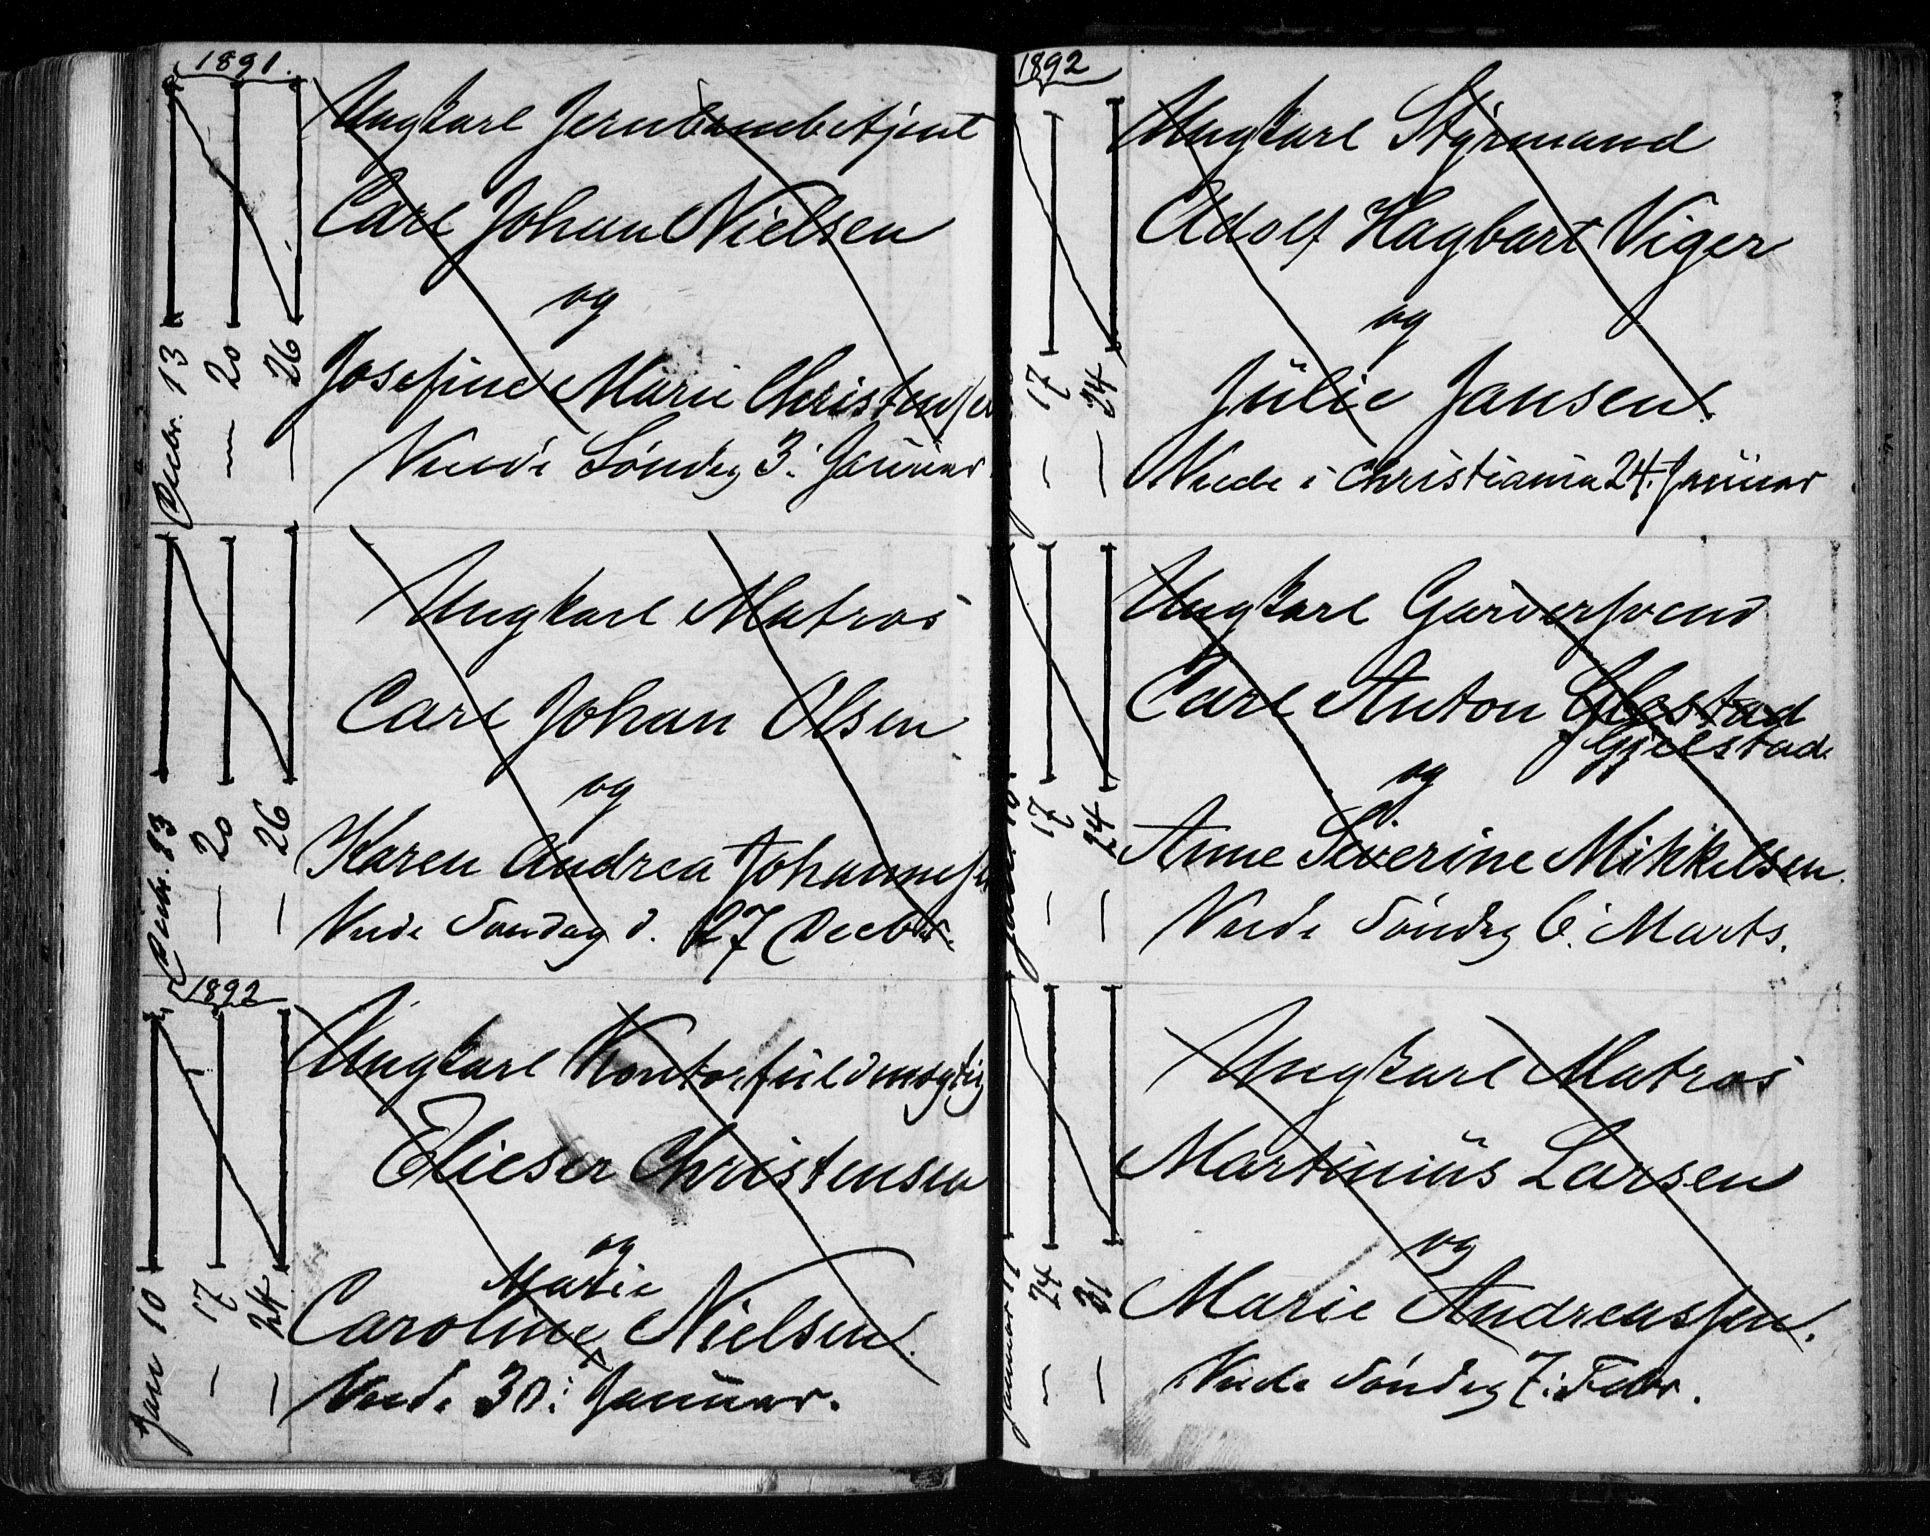 1891.
Decbr. 13
— 20
— 26
Ungkarl Jernbanebetjent
Carl Johan Nielsen
og
Josefine Marie Christensen
Viede Søndag 3: Januar
Decbr. 13
— 20
— 26
Ungkarl Matros
Carl Johan Olsen
og
Karen Andrea Johannesen
Viede Søndag d. 27 Decbr.
1892
Jan 10
— 17
— 24
Ungkarl Kontorfuldmægtig
Elieser Christensen
og
Marie
Caroline Nielsen.
Viede 30: Januar.
1892
— 17
— 24
Ungkarl Styrmand
Adolf Hagbart Viger
og
Júlie Jansen.
Viede i Christiania 24. Januar
Jan. 10
— 17
— 24
Ungkarl Garversvend
Carl Anton Glostad
Gjelstad.
og
Anne Severine Mikkelsen.
Viede Søndag 6: Marts.
Januar 17
— 24
— 31
Ungkarl Matros
Martinius Larsen
og
Marie Andreassen.
Viede Søndag 7: Febr.